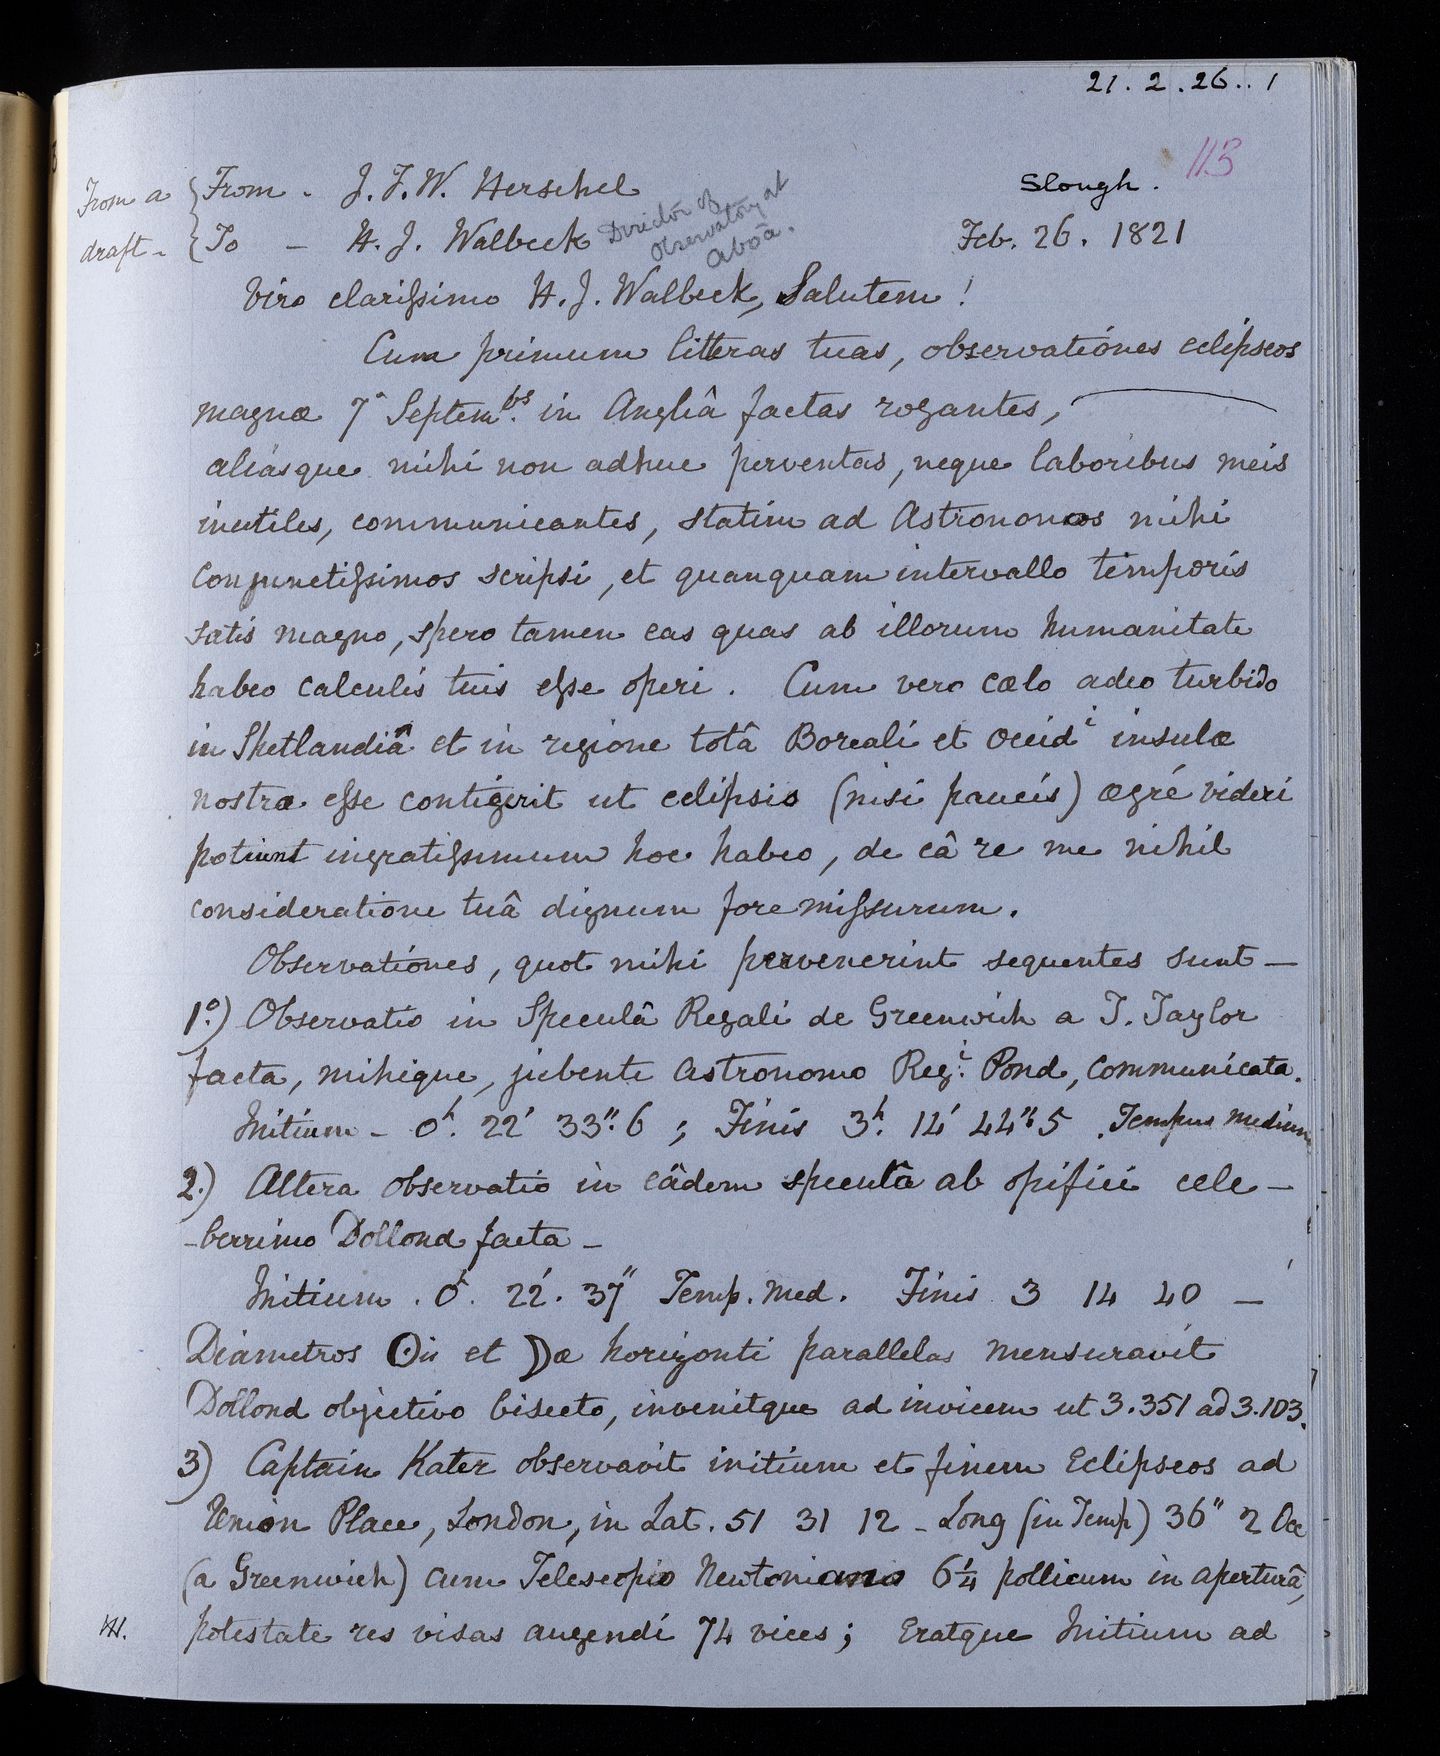 21 . 2 . 26 . . 1
113
From a draft - { From - J. F. W. Herschel Slough .
To - H. J. Walbeck Director of Observatory at Aboa. Feb. 26. 1821
Viro clarissimo H. J. Walbeck, Salutem!
Cum primum litteras tuas, observationes eclipseos
magnæ 7ᵃ Septemᵇˢ. in Angliâ factas rogantes,
aliasque mihi non adhuc perventas, neque laboribus meis
inutiles, communicantes, statim ad Astronomos mihi
conjunctissimos scripsi, et quanquam intervallo temporis
satis magno, spero tamen eas quas ab illorum humanitate
habeo calculis tuis esse operi. Cum vero cœlo adeo turbido
in Shetlandiâ et in regione totâ Boreali et Occidⁱ insulæ
nostræ esse contigerit ut eclipsis (nisi paucis) ægré videri
potiunt ingratissimum hoc habeo, de eâ re me nihil
consideratione tuâ dignum fore missurum.
Observationes, quot mihi pervenerint sequentes sunt -
1º.) Observatio in Speculâ Regali de Greenwich a T. Taylor
facta, mihique, jubente Astronomo Reg.ⁱ Pond, communicata.
Initium - 0ʰ. 22′ 33″.6 ; Finis 3ʰ. 14′ 44″.5 . Tempus Medium
2.) Altera observatio in eâdem speculâ ab opifici cele-
-berrimo Dollond facta -
Initium . 0ʰ. 22′. 37″ Temp. Med. Finis 3 14 40 -
Diametros ⊙is et ☽æ horizonti parallelas mensuravit
Dollond objectivo bisecto, invenitque ad invicem ut 3.351 ad 3.103.
3) Captain Kater observavit initium et finem Eclipseos ad
Union Place, London, in Lat. 51 31 12 - Long (in Temp) 36″ 2 Occ
(a Greenwich) cum Telescopio Newtoniano 6¼ pollicum in aperturâ,
potestate res visas augendi 74 vices; Eratque Initium ad